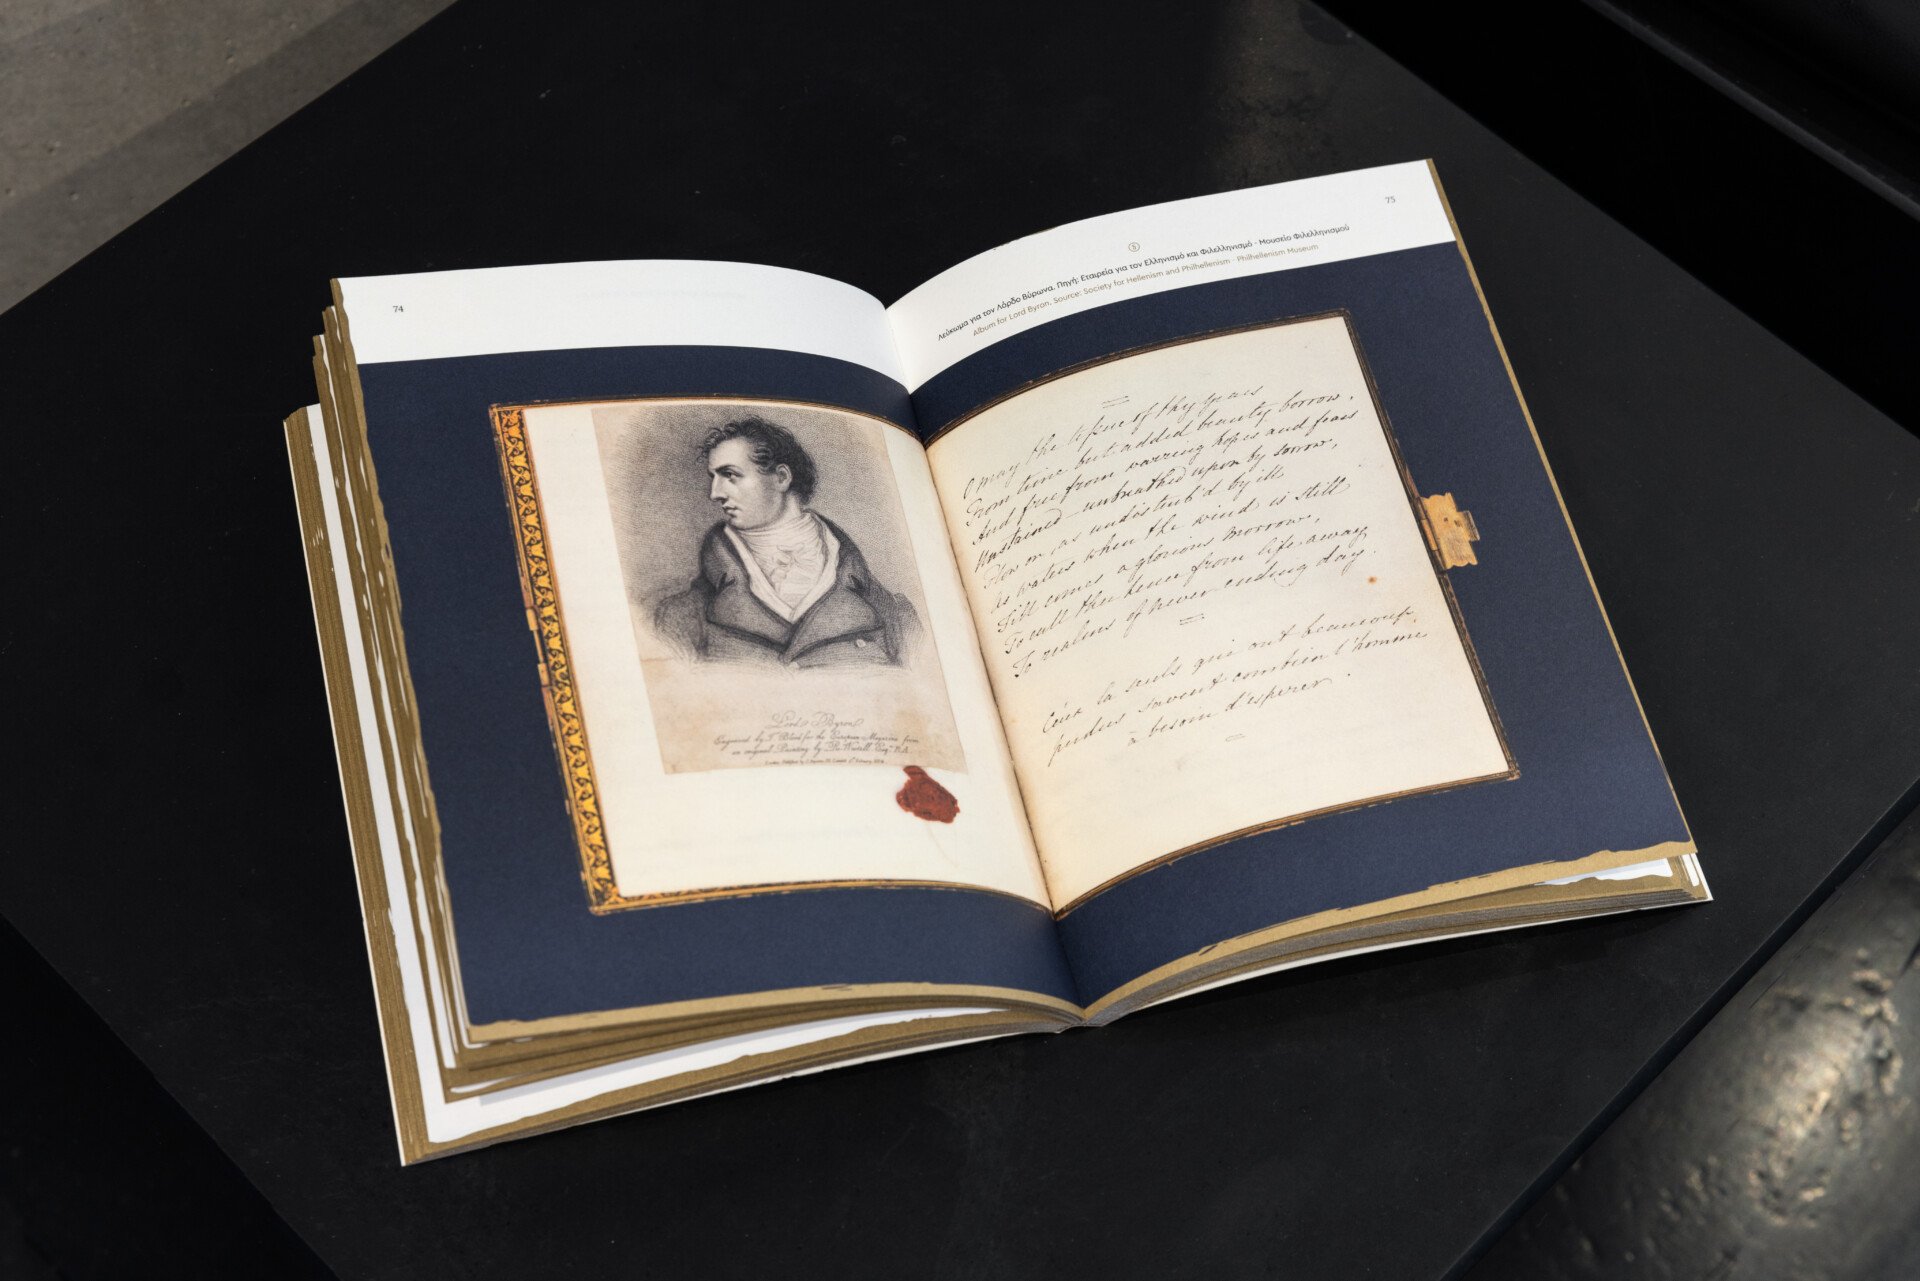 74
75
5
Λεύκωμα για τον Λόρδο Βύρωνα. Πηγή: Εταιρεία για τον Ελληνισμό και Φιλελληνισμό · Μουσείο Φιλελληνισμού
Album for Lord Byron, Source: Society for Hellenism and Philhellenism · Philhellenism Museum
Lord Byron
Engraved by T. Blood for the European Magazine from
an original Painting by R. Westall Esqr. R.A.
O may the tissue of thy years
From time but added beauty borrow,
And free from warring hopes and fears
Unstained unbreathed upon by sorrow,
Flow on, as undisturb'd by ill
As waters when the wind is still
Till comes a glorious morrow,
To call thee hence from life away
To realms of never ending day.
Ceux la seuls qui ont beaucoup
perdus savent combien l'homme
à besoin d'esperer.